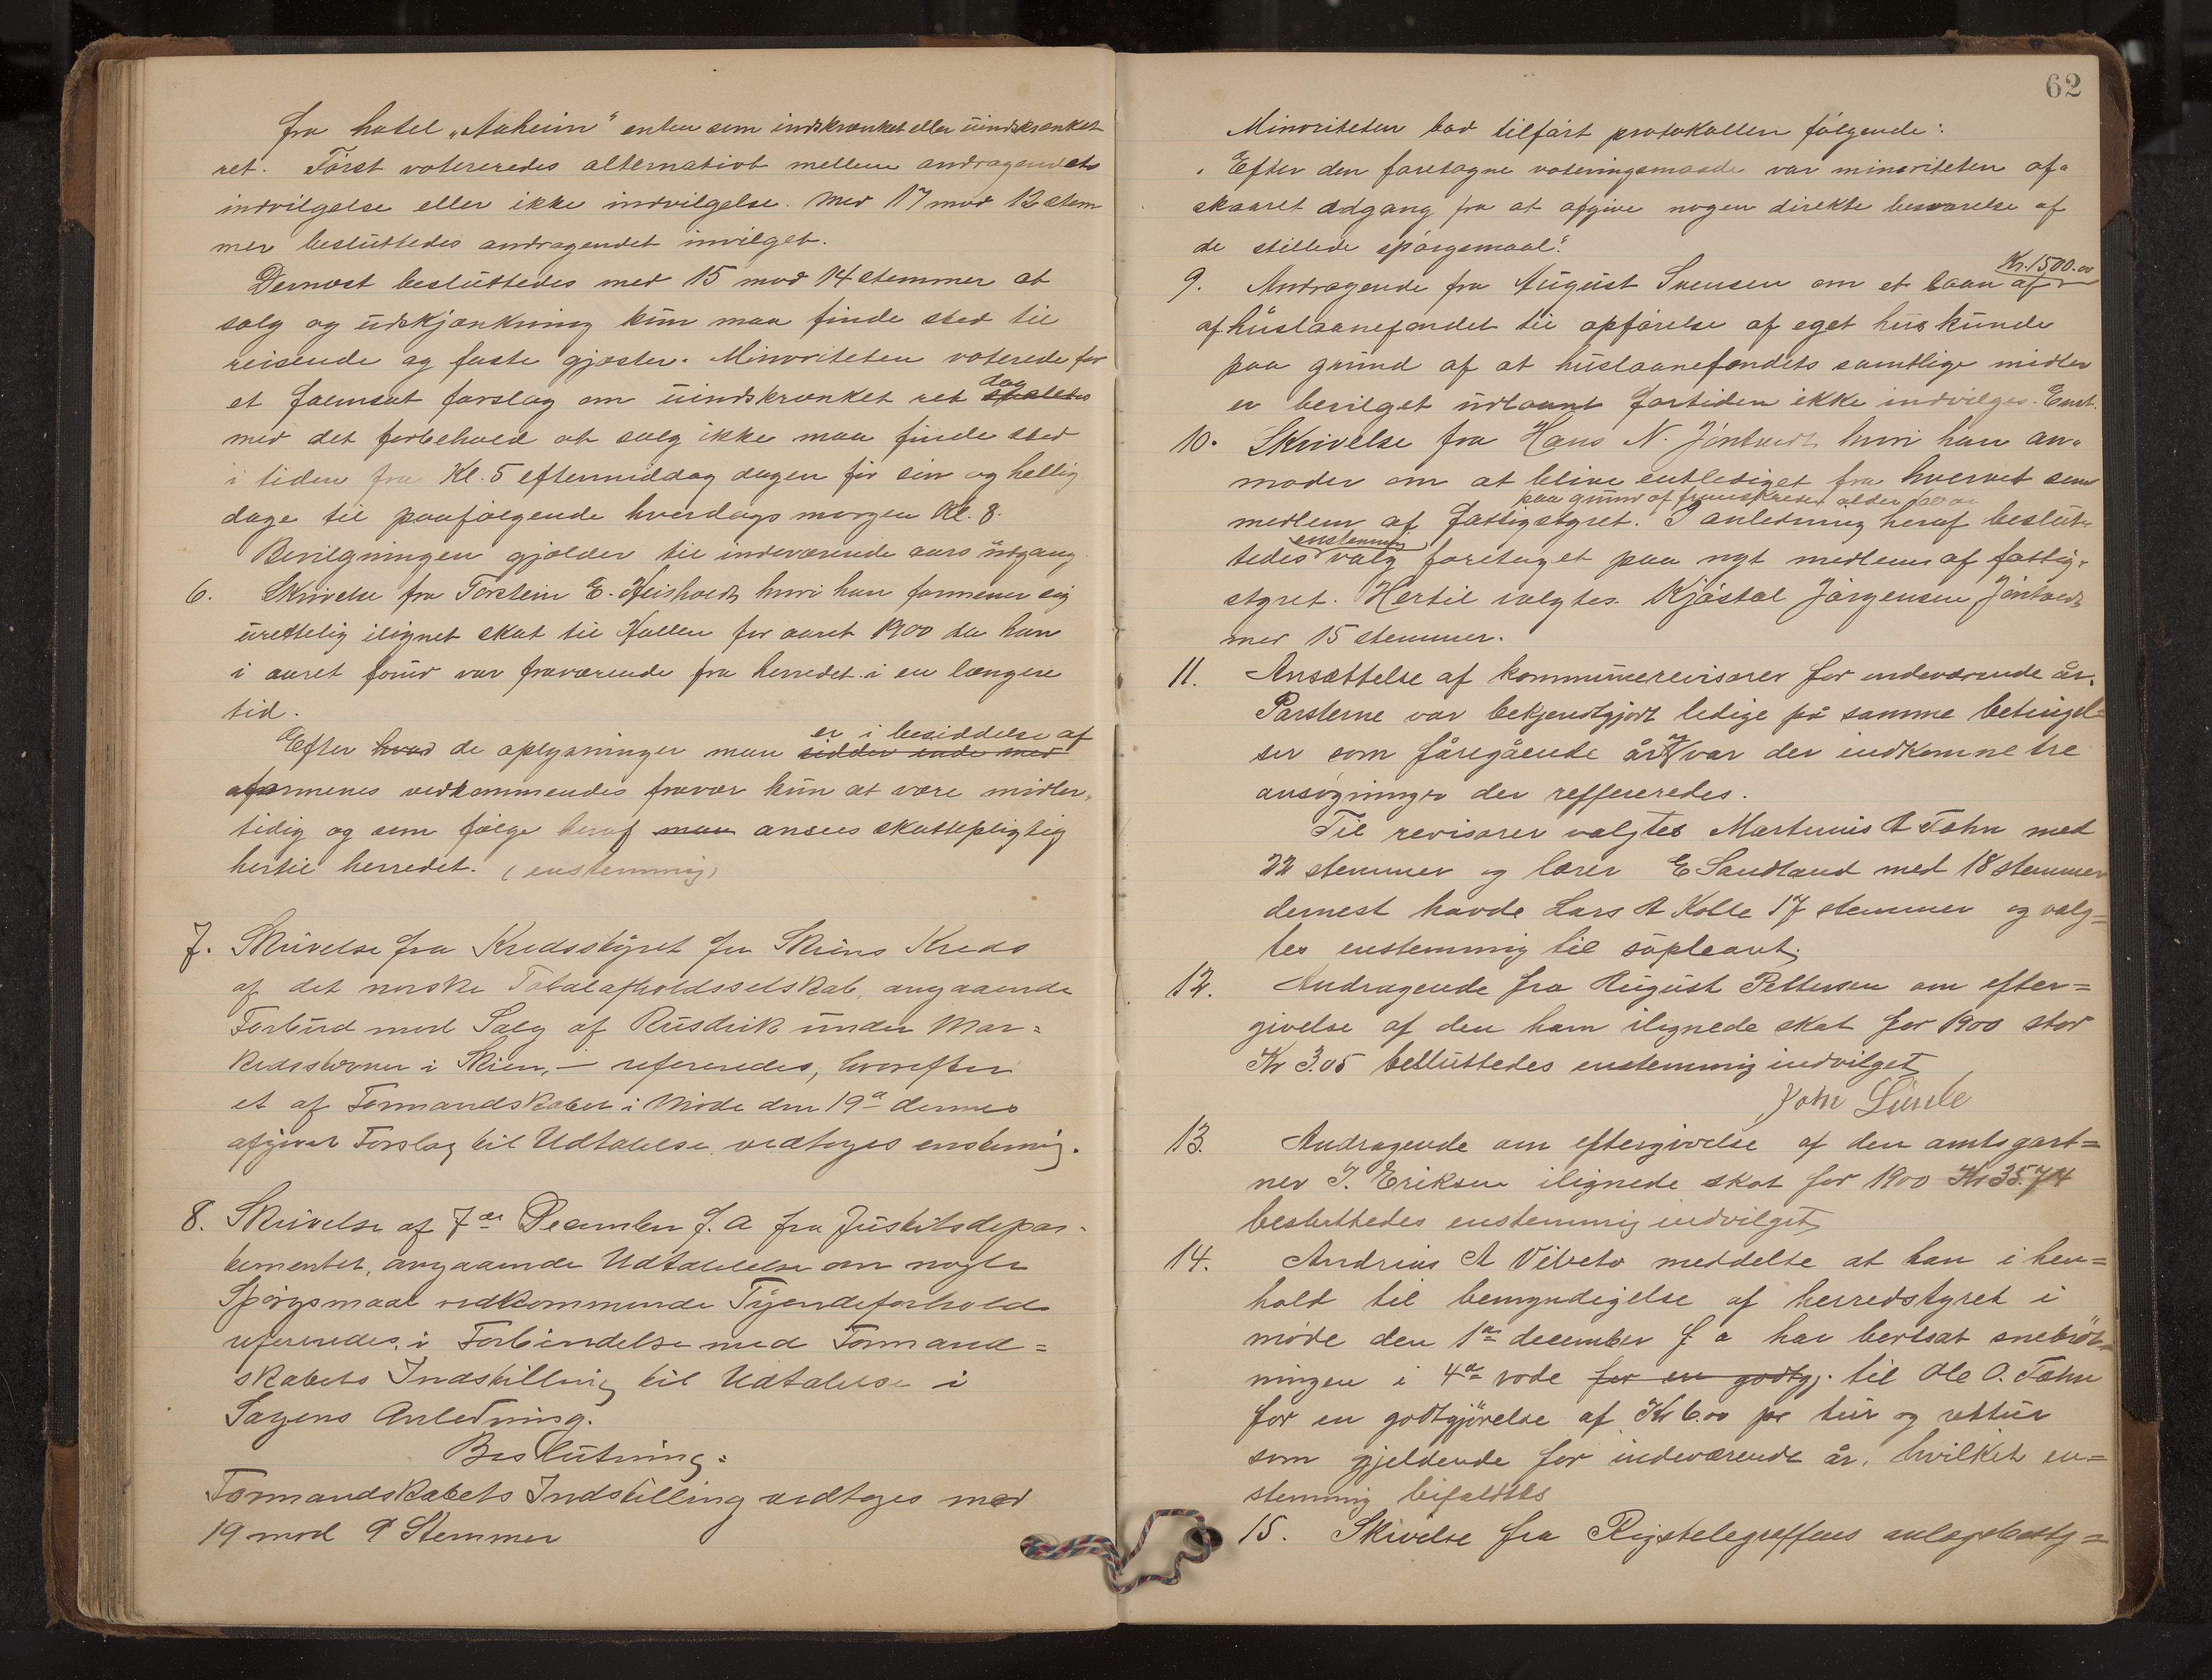 fra hotel „Aaheim" enten som indskrænket eller uindskrænket
ret. Først votereredes alternativt mellem andragendets
indvilgelse eller ikke indvilgelse. Med 17 mod 12 stem
mer besluttedes andragendet invilget.
Dernæst besluttedes med 15 mod 14 stemmer at
salg og udskjænkning kun maa finde sted til
reisende og faste gjæster. Minoriteten voterede for
et fremsat forslag om uindskrænket ret dog
med det forbehold at salg ikke maa finde sted
i tiden fra Kl. 5 eftermiddag dagen før søn og hellig
dage til paafølgende hverdags morgen Kl. 8.
Bevilgningen gjælder til indeværende aars udgang.
6. Skrivelse fra Torstein E. hvori han formener sig
urettelig ilignet skat til Hollen for aaret 1900 da han
i aaret forud var fraværende fra herredet i en længere
tid.
er i besiddelse af
Efter hvad de oplysninger man sidder inde med
formenes vedkommendes fravær kun at være midler-
tidig og som følge heraf man ansees skattepligtig
hertil herredet. (enstemmig)
7. Skrivelse fra Kredsstyret for Skiens Kreds
af det norske Totalafholdsselskab, angaaende
Forbud mod Salg af Rusdrik under Mar=
kedsstevner i Skien, – refereredes, hvorefter
et af Formandskabet i Møde den 19de dennes
afgivet Forslag til Udtalelse vedtoges enstemmig.
8. Skrivelse af 7de December f. a fra Justitsdepar-
tementet, angaaende Udtalelse om nogle
Spørgsmaal vedkommende Tyendeforhold
refereredes, i Forbindelse med Formand=
skabets Indstilling til Udtalelse i
Sagens Anledning.
Beslutning:
Formandskabets Indstilling vedtoges med
19 mod 9 Stemmer
62
Minoriteten bad tilført protokollen følgende:
„Efter den foretagne voteringsmaade var minoriteten af-
skaaret adgang fra at afgive nogen direkte besvarelse af
de stillede spørgsmaal".
Kr. 1500.00
9. Andragende fra August Svensen om et laan af
af huslaanefondet til opførelse af eget hus kunde
paa grund af at huslaanefondets samtlige midler
er bevilget udlaant fortiden ikke indvilges. Enst.
10. Skrivelse fra Hans N. Jøntvedt hvori han an-
moder om at blive entlediget fra hvervet som
paa grund af fremskreden alder
medlem af fattigstyret. I anledning heraf beslut-
enstemmig
tedes valg foretaget paa nyt medlem af fattig-
styret. Hertil valgtes Kjøstal Jørgensen Jøntvedt
med 15 stemmer.
11. Ansættelse af kommunerevisorer for indeværende år.
Posterne var bekjendtgjort ledige på samme betingel=
ser som foregående år var der indkomne tre
ansøgninger der reffereredes.
Til revisorer valgtes Martinius A Tohn med
22 stemmer og lærer E Sandland med 18 stemmer
dernest havde Lars A Kolle 17 stemmer og valg=
tes enstemmig til supleant.
12. Andragende fra August Pettersen om efter=
givelse af den ham ilignede skat for 1900 stor
Kr 3.05 besluttedes enstemmig indvilget
John Lunde
13. Andragende om eftergivelse af den amtsgart=
ner J. Eriksen ilignede skat for 1900 Kr 35.74
besluttedes enstemmig indvilget
14. Andreas A Vibeto meddelte at han i hen=
hold til bemyndigelse af herredstyret i
møde den 1ste december f a har bortsat snebrøt
ningen i 4de rode for en godtgj. til Ole O. Tohn
for en godtgjørelse af Kr 6.00 pr tur og rettur
som gjeldende for indeværende år, hvilket en=
stemmig bifaldtes
15. Skrivelse fra Rigstelegraffens anlægsbesty=